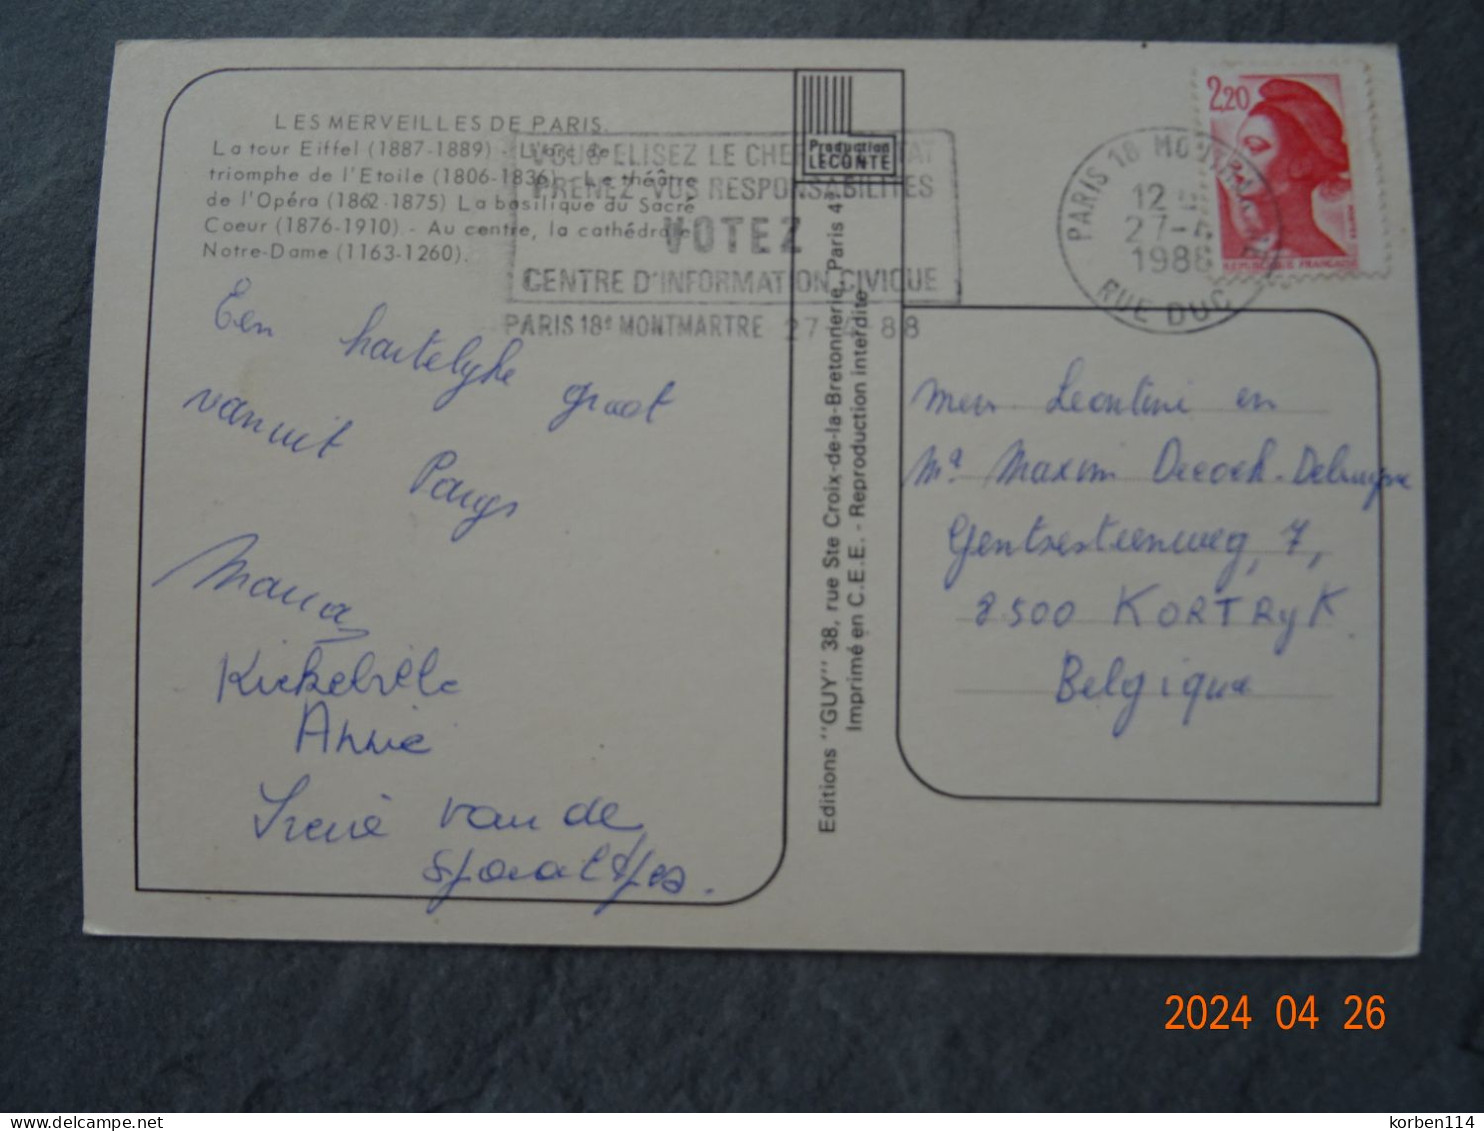 LES MERVEILLES DE PARIS.
La tour Eiffel (1887-1889) - L'Arc de
triomphe de l'Etoile (1806-1836) - Le théâtre
de l'Opéra (1862-1875) La basilique du Sacré
Coeur (1876-1910) - Au centre, la cathédrale
Notre-Dame (1163-1260).
VOUS ELISEZ LE CHEF
PRENEZ VOS RESPONSABILITES
VOTEZ
CENTRE D'INFORMATION CIVIQUE
PARIS 18e MONTMARTRE 27-4-88
Production
LECONTE
Editions "GUY" 38, rue Ste Croix-de-la-Bretonnerie, Paris 4e
Imprimé en C.E.E. - Reproduction interdite
2,20
REPUBLIQUE FRANÇAISE
PARIS 18 MONTMARTRE
12
27-4
1988
RUE DUC
Een hartelyke groet
vanuit Parys
Maria
Annie
Irené van de
Leontine en
Mr Maxim
Gentsesteenweg, 7,
8500 KORTRyK
Belgique
2024 04 26
korben114